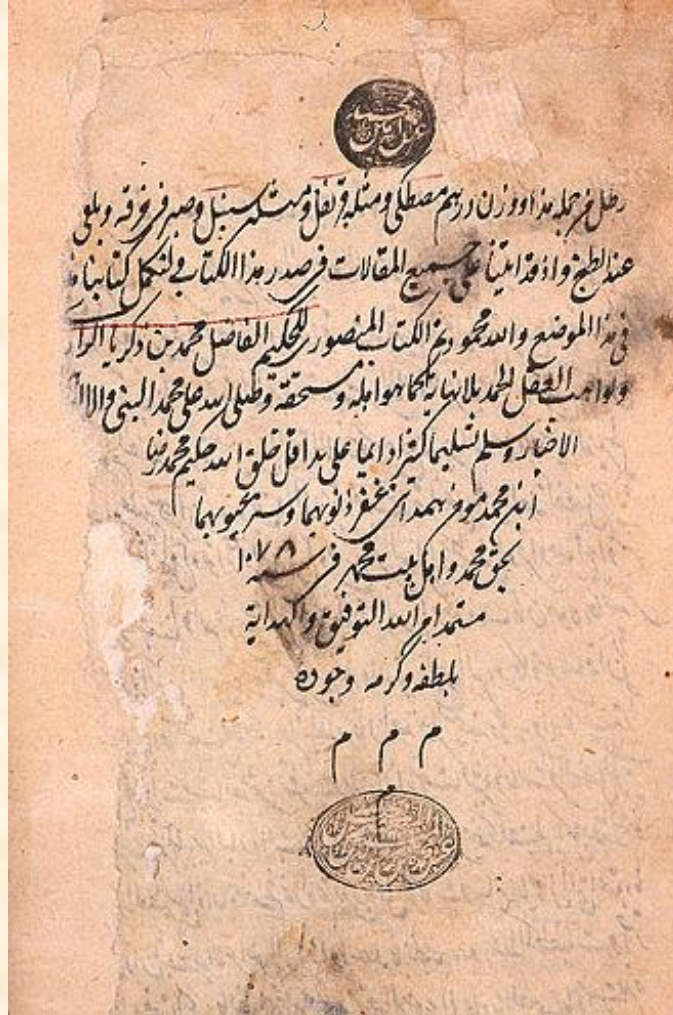 رطل من جمله هذا ووزن درهم مصطكى ومثله قرنفل ومثله سنبل وصبره فى خرقه ويلقى
عند الطبخ واذ قد اتينا على جميع المقالات فى صدر هذا الكتاب فلنكمل كتابنا
فى هذا الموضع والله محمود تم الكتاب المنصورى للحكيم الفاضل محمد بن زكريا
ولواهب العقل الحمد بلا نهاية كما هو اهله ومستحقه وصلى الله على محمد النبى
الاخيار وسلم تسليما كثيرا دايما على يد اقل خلق الله حكيم محمد رضا
ابن محمد مومن همدانى غفر ذنوبهما وستر عيوبهما
بحق محمد واهل بيت محمد فى سنه ١٠٧٨
مستمدا من الله التوفيق والهداية
بلطفه وكرمه وجوده
م م م